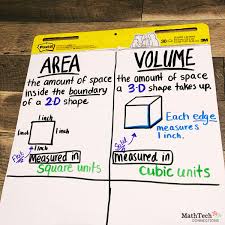 Post-it
3M
AREA
the amount of space
inside the boundary
of a 2-D shape
1 inch
1 inch
1 inch
1 inch
Measured in
Square units
VOLUME
the amount of space
a 3-D shape takes up.
Each edge
measures
1 inch.
Measured in
Cubic units
MathTech
CONNECTIONS